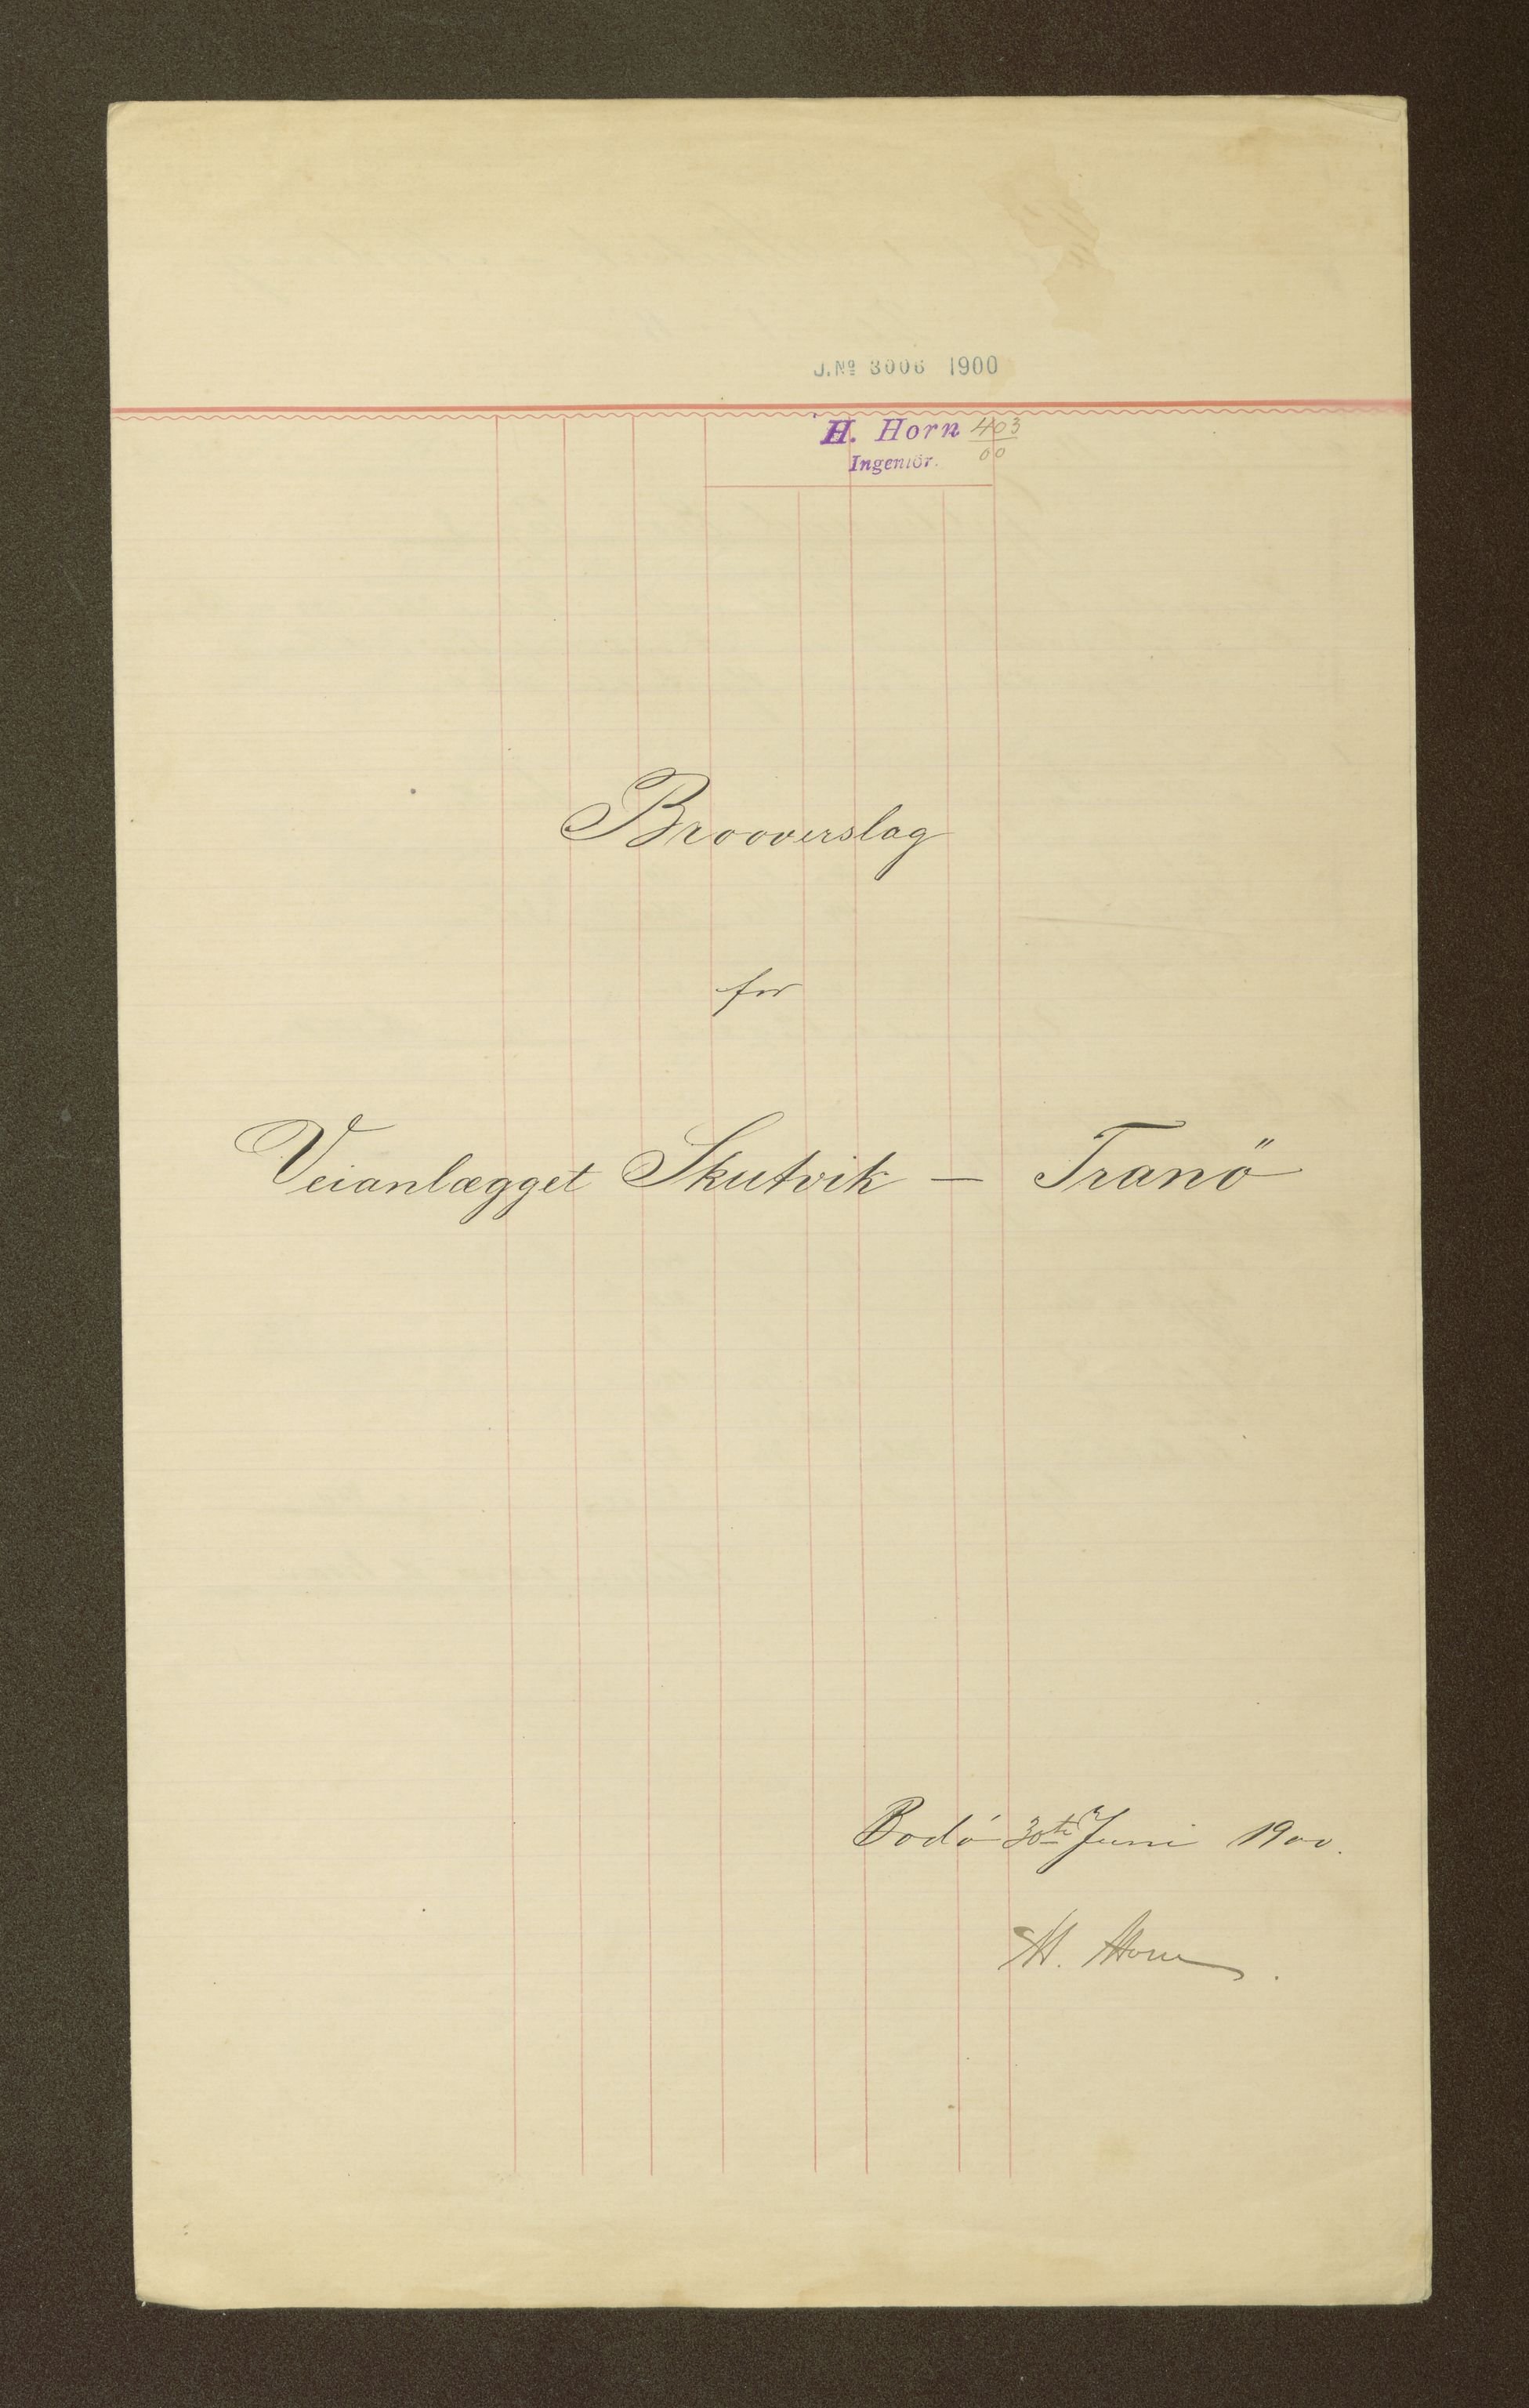 J.Nº 3006 1900
H. Horn 403
Ingeniör. 00
Brooverslag
for
Veianlægget Skutvik — Tranö
Bodö 30te Juni 1900.
H. Horn.